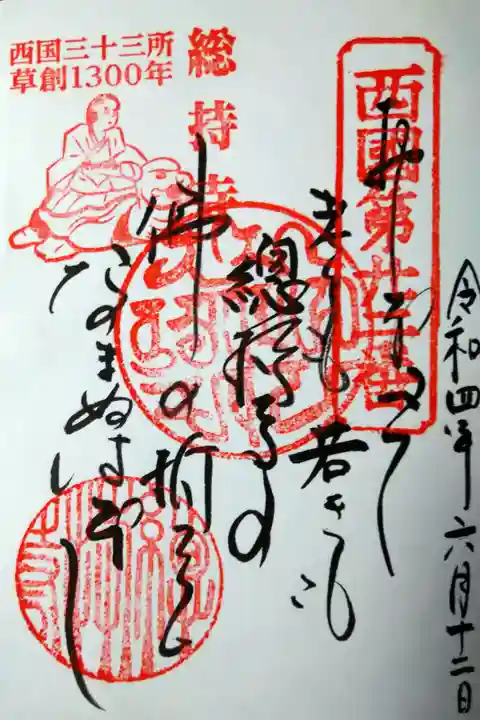 西国三十三所
草創1300年
総持寺
西國第廿二番
令和四年六月十二日
おしなへて
老いも若きも
總持寺の
佛の誓ひ
たのまぬはなし